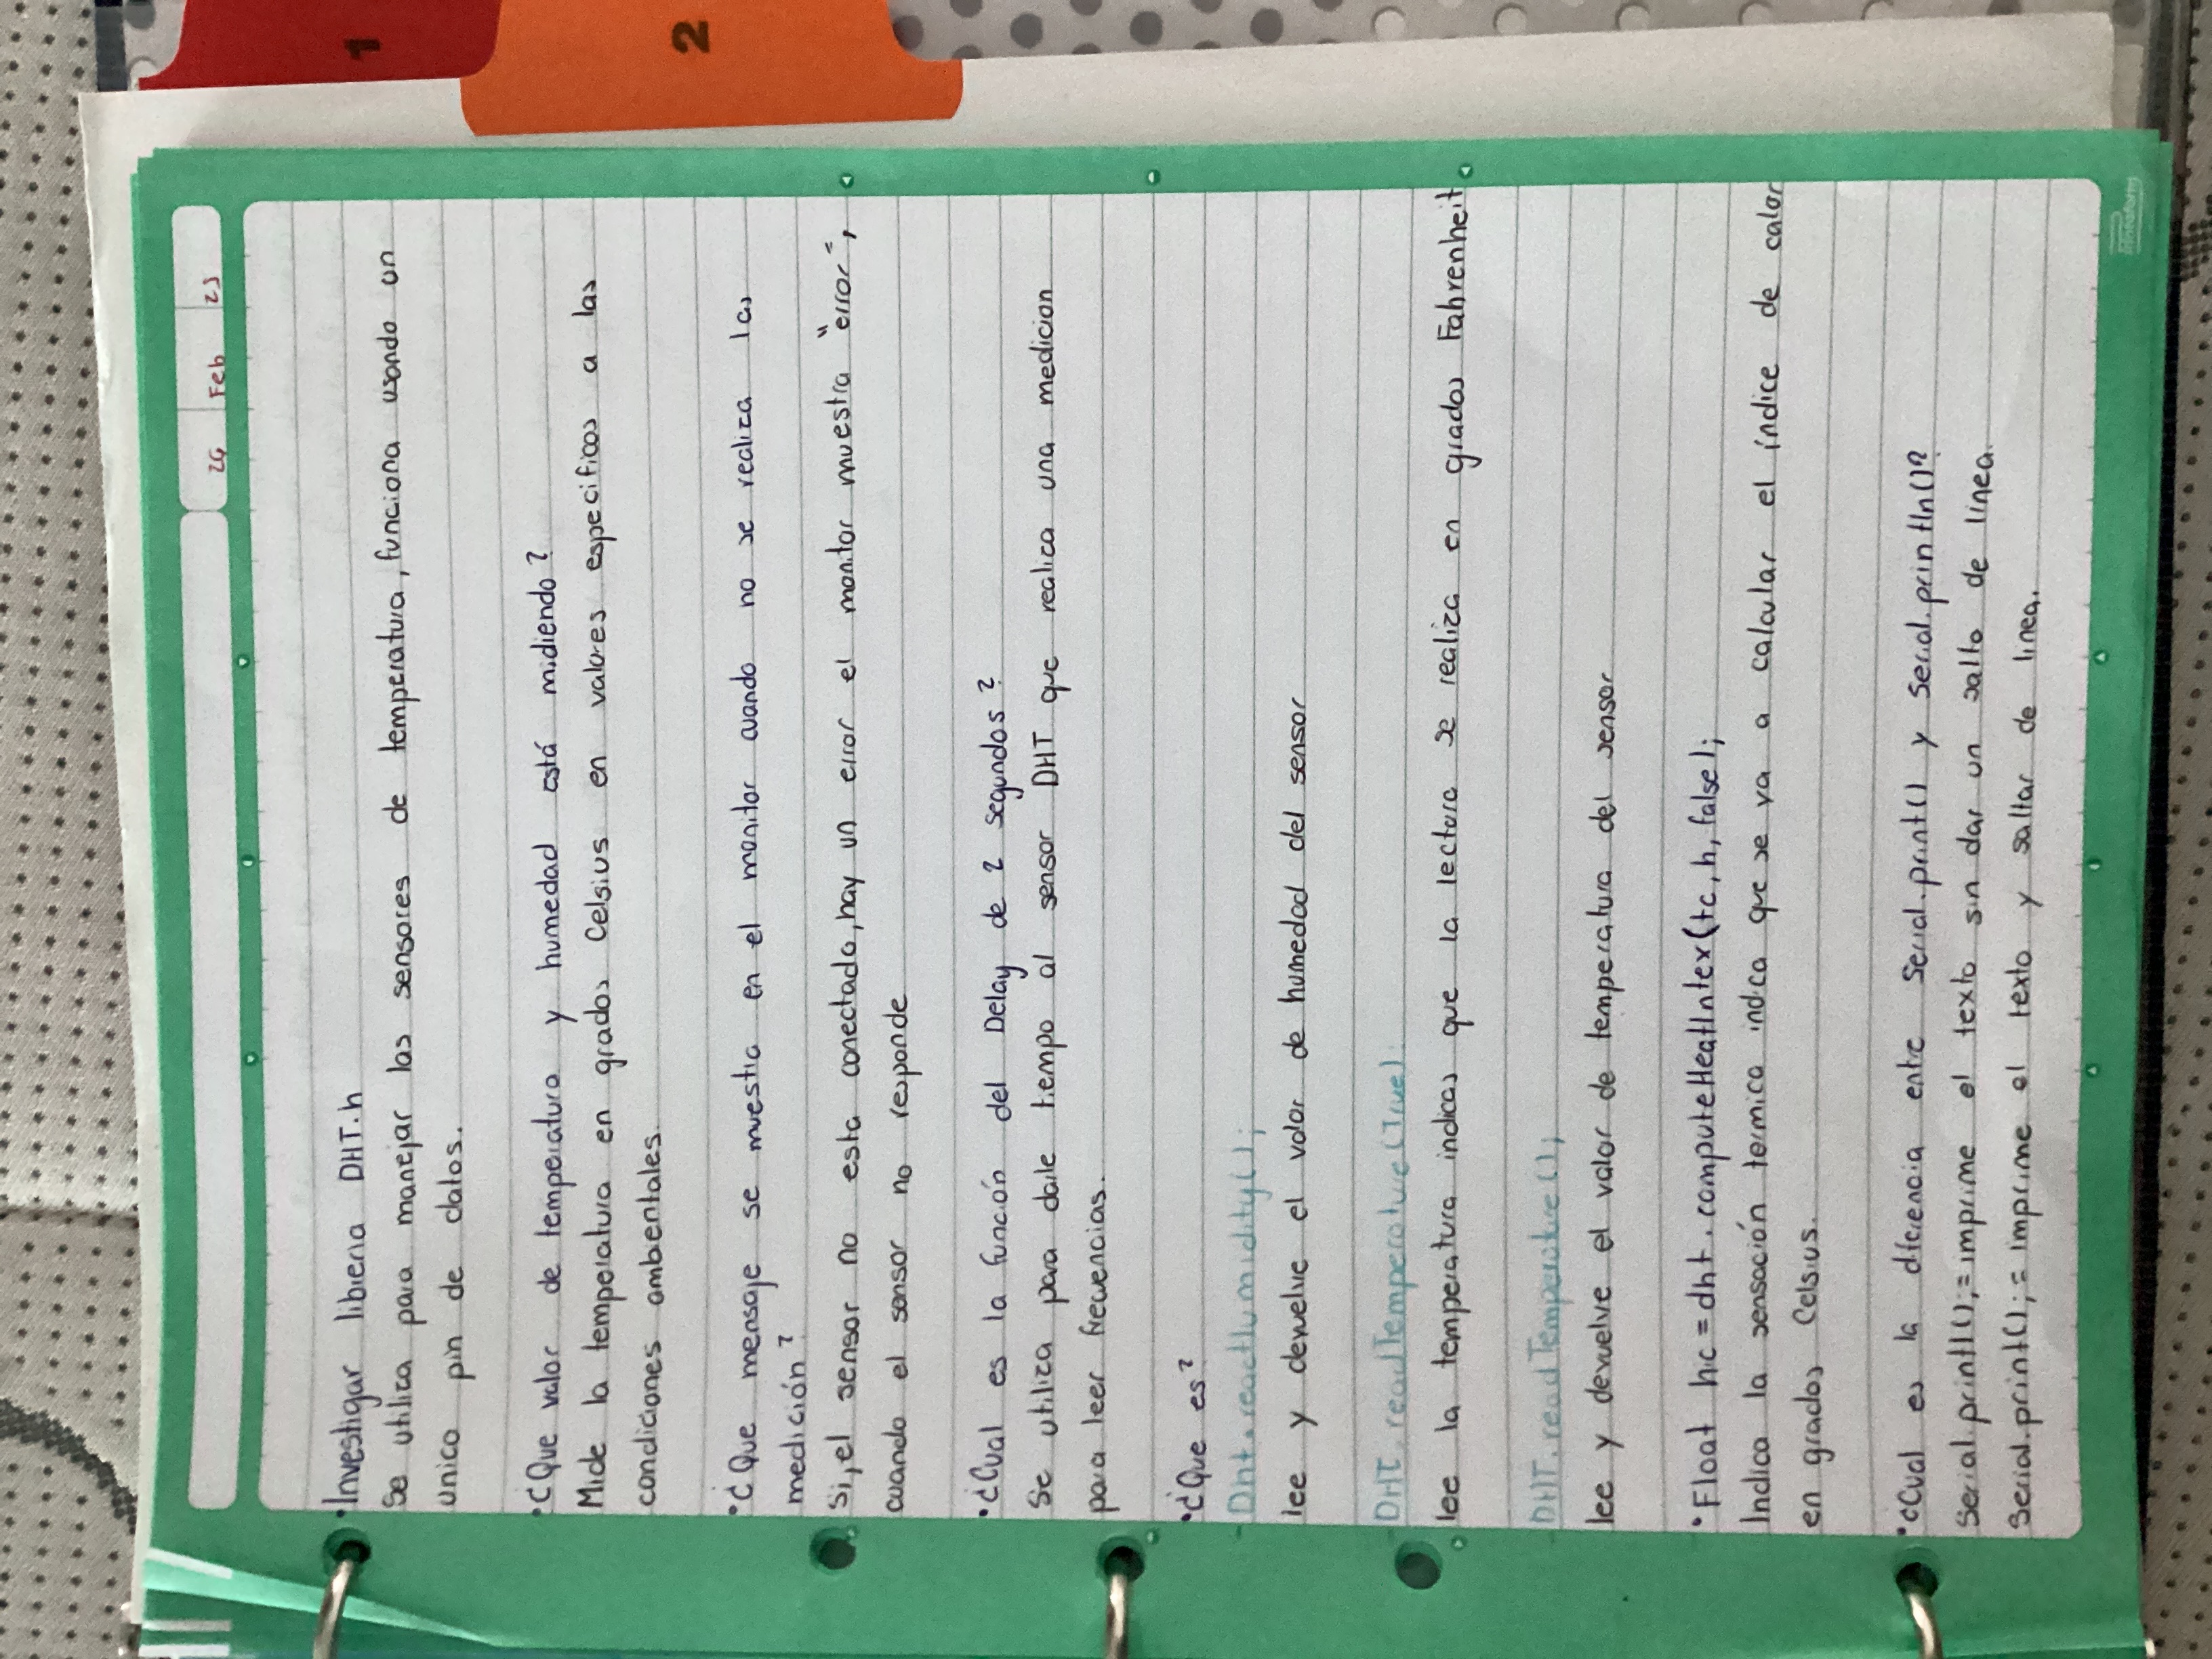 1
2
24 Feb 23
• Investigar libieria DHT.h
Se utiliza para manejar los sensores de temperatura, funciona usando un
unico pin de datos.
• ¿Que valor de temperatura y humedad está midiendo?
Mide la temperatura en grados Celsius en valores especificos a las
condiciones ambientales.
• ¿Que mensaje se muestra en el monitor cuando no se realiza las
medición?
Si, el sensor no esta conectado, hay un error el monitor muestra "error",
cuando el sensor no responde
• ¿Cual es la función del Delay de 2 segundos?
Se utiliza para darle tiempo al sensor DHT que realica una medicion
para leer frecuencias.
• ¿Que es?
Dht.readHumidity();
lee y devuelve el valor de humedad del sensor
DHT.readTemperature(True):
lee la temperatura indicas que la lectura se realiza en grados Fahrenheit
DHT.readTemperature();
lee y devuelve el valor de temperatura del sensor
• Float hic = dht.computeHeatIntex(tc, h, false);
Indica la sensación termica indica que se va a calcular el índice de calor
en grados Celsius.
• ¿Cual es la diferencia entre Serial.print() y Serial.println()?
Serial.print(); = imprime el texto sin dar un salto de línea.
Serial.print(); = imprime el texto y saltar de linea.